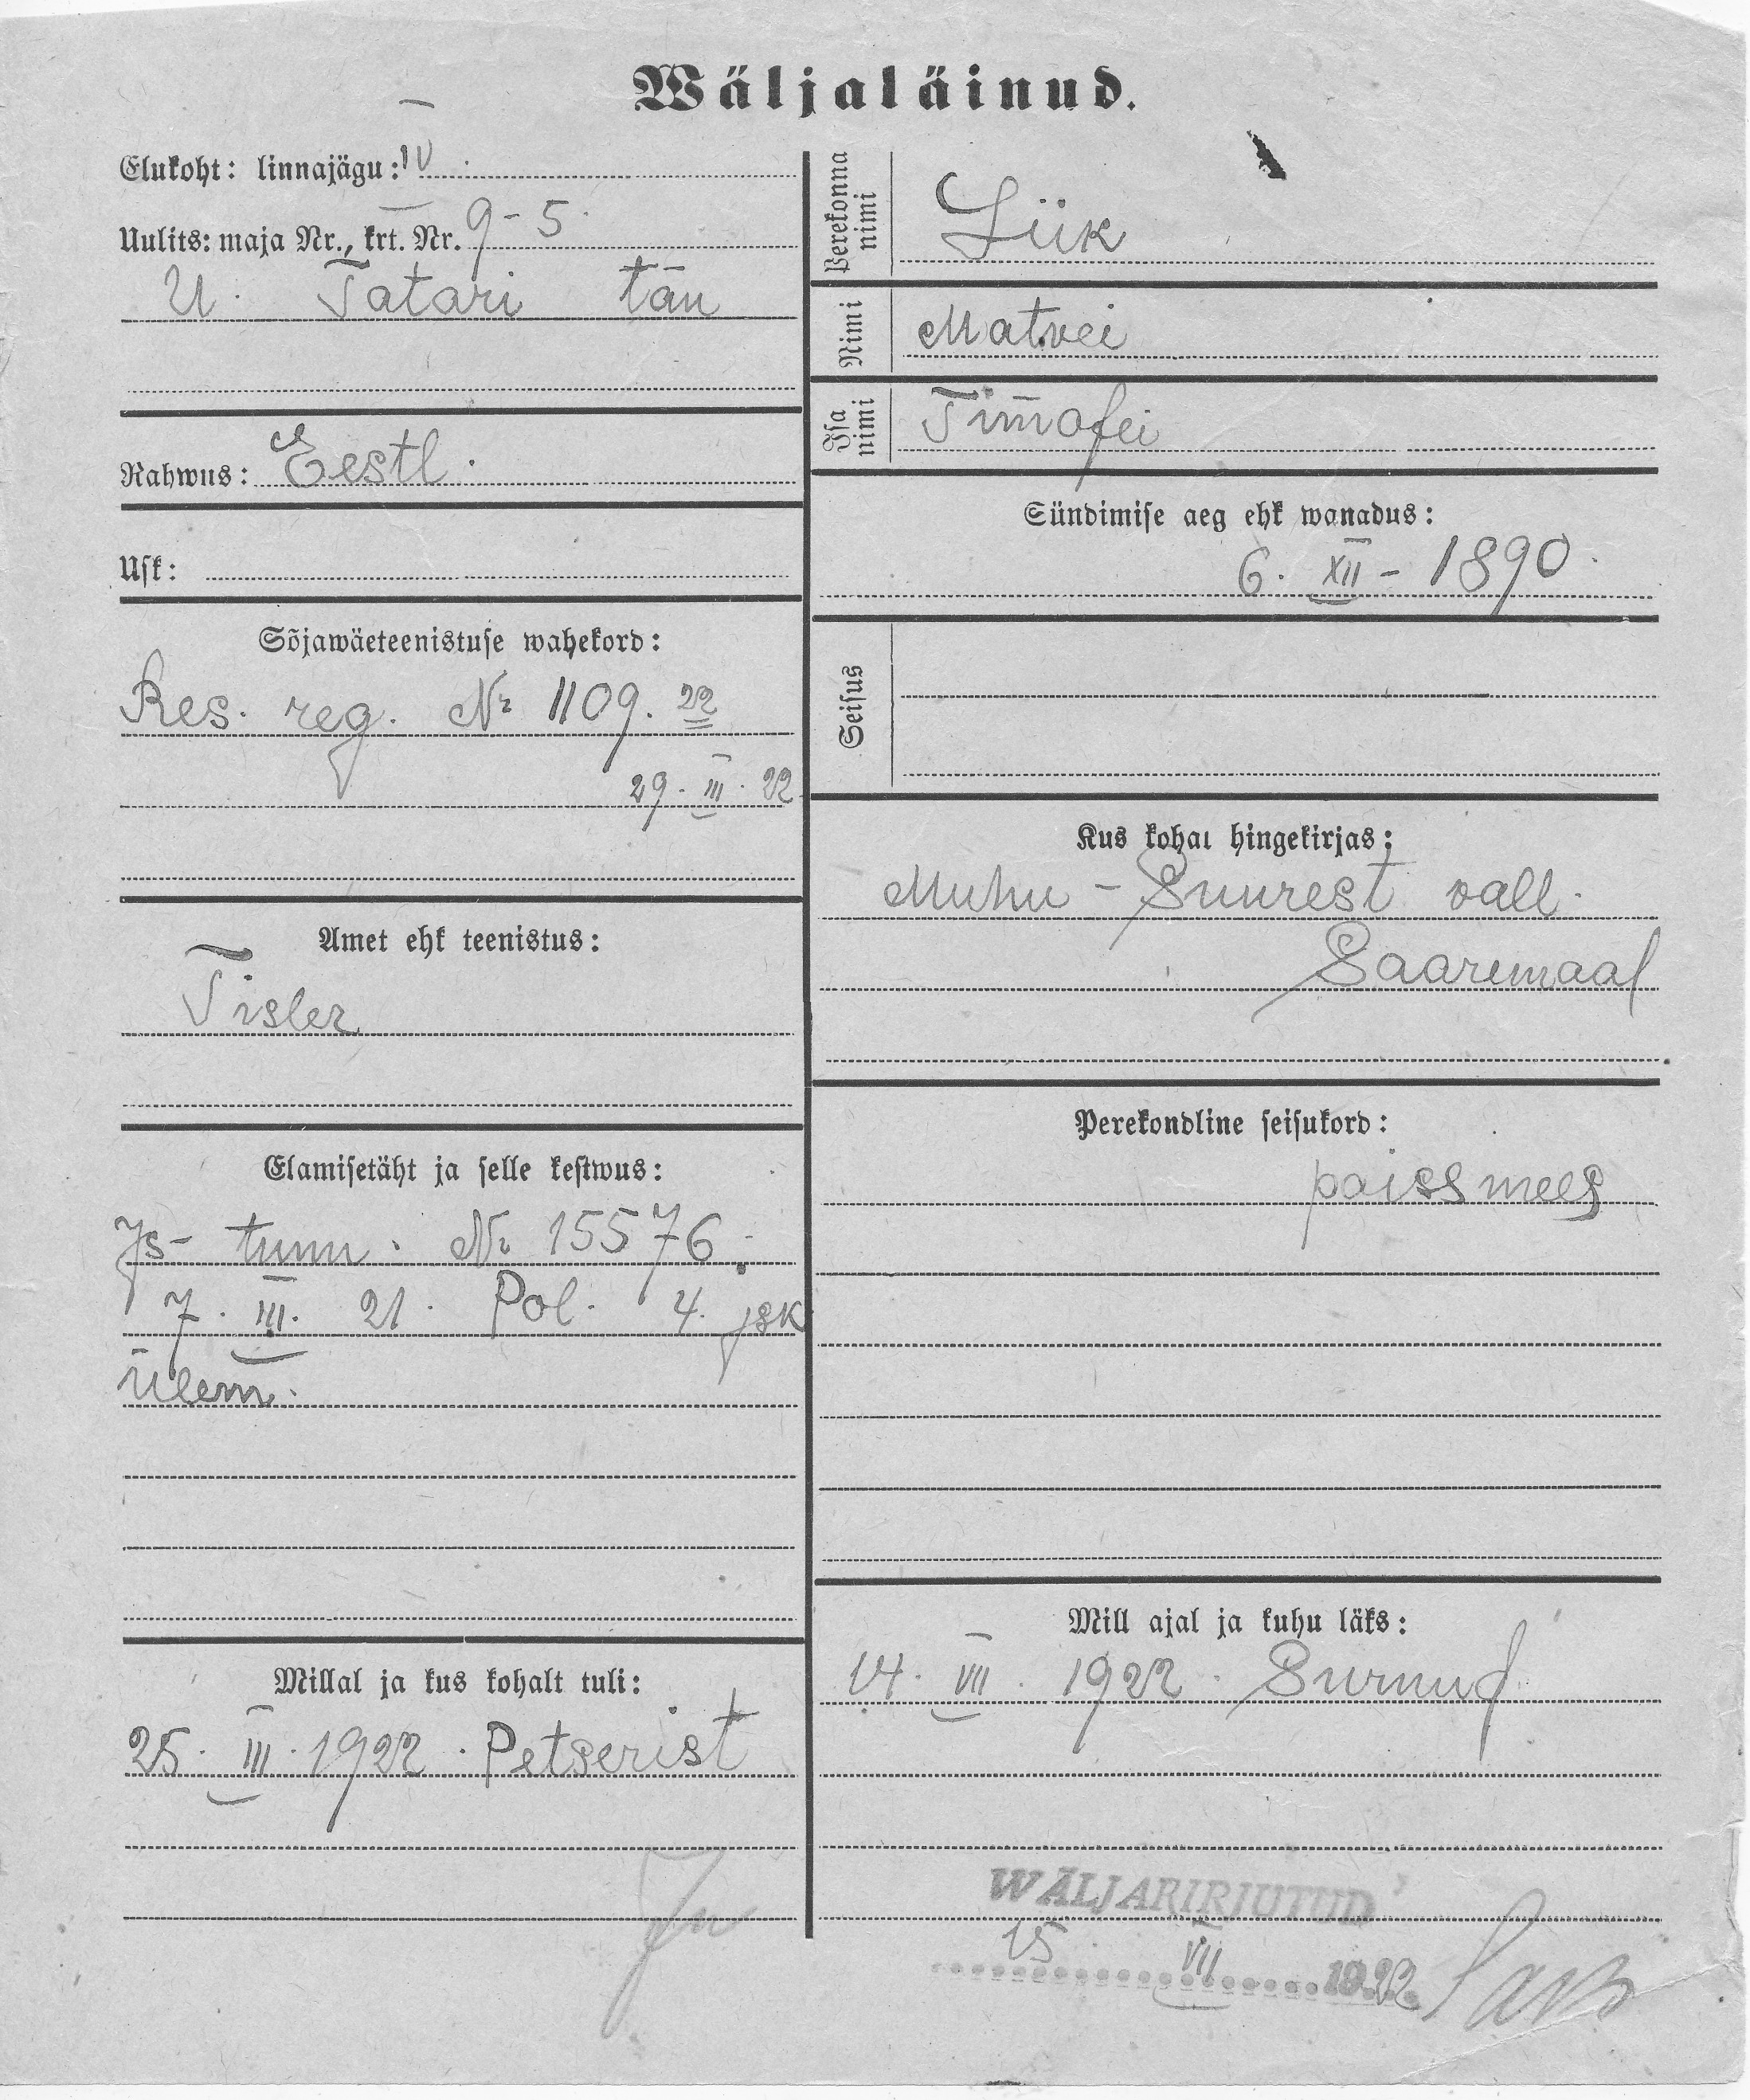 Wäljaläinud.
Elukoht: linnajägu: IV
Uulits: maja Nr., krt. Nr. 9-5
U. Tatari tän
Rahwus: Eestl.
Usk:
Sõjawäeteenistuse wahekord:
Res. reg. № 1109. 22
29. III. 22
Amet ehk teenistus:
Tisler
Elamisetäht ja selle kestwus:
Is- tunn. № 15576.
7. III. 21. Pol. 4. jsk
Ülem.
Millal ja kus kohalt tuli:
25. III. 1922. Petserist
Perekonna nimi
Liik
Nimi
Matvei
Isa nimi
Timofei
Sündimise aeg ehk wanadus:
6. XII - 1890.
Seisus
Kus kohal hingekirjas:
Muhu - Suurest vall.
Saaremaal
Perekondline seisukord:
poissmees
Mill ajal ja kuhu läks:
14. VII. 1922. Surnud
WÄLJAKIRJUTUD
15 VII 1922